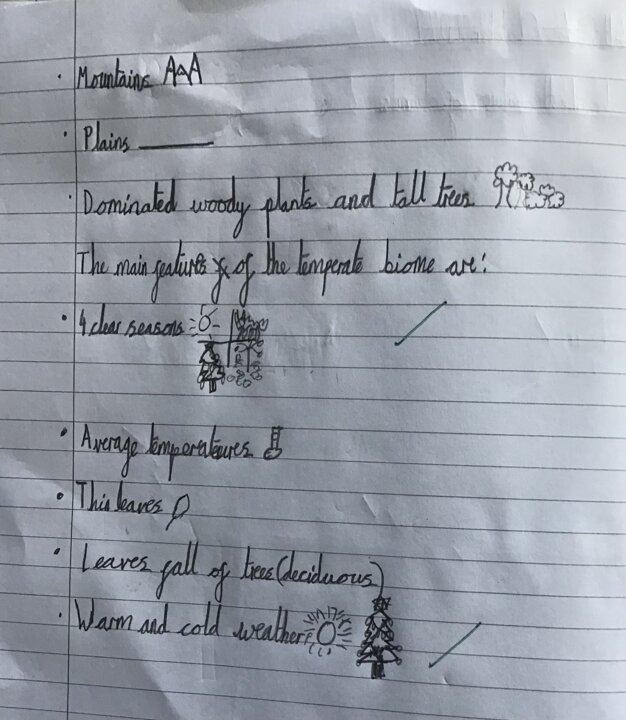 · Mountains
· Plains
· Dominated woody plants and tall trees
The main features of the temperate biome are:
· 4 clear seasons
· Average temperatures
· This leaves
· Leaves fall of trees (deciduous)
· Warm and cold weather